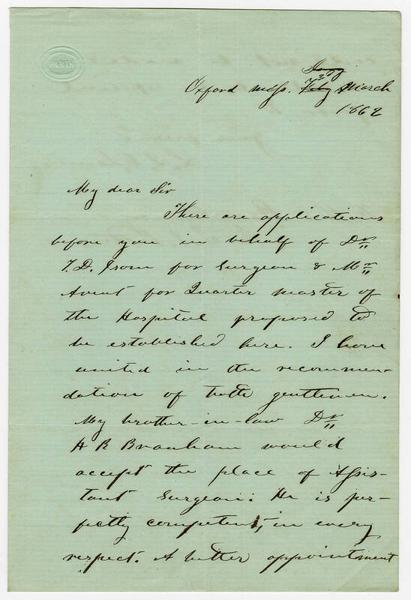 Oxford Missi. March
1862
My dear Sir
There are applications
before you in behalf of Dr
T. D. Isom for Surgeon & Mr
Avent for Quarter Master of
the Hospital proposed to
be established here. I have
united in the recommen-
dation of both gentlemen.
My brother-in-law Dr
H R Branham would
accept the place of Assis-
tant Surgeon: He is per-
fectly competent, in every
respect. A better appointment